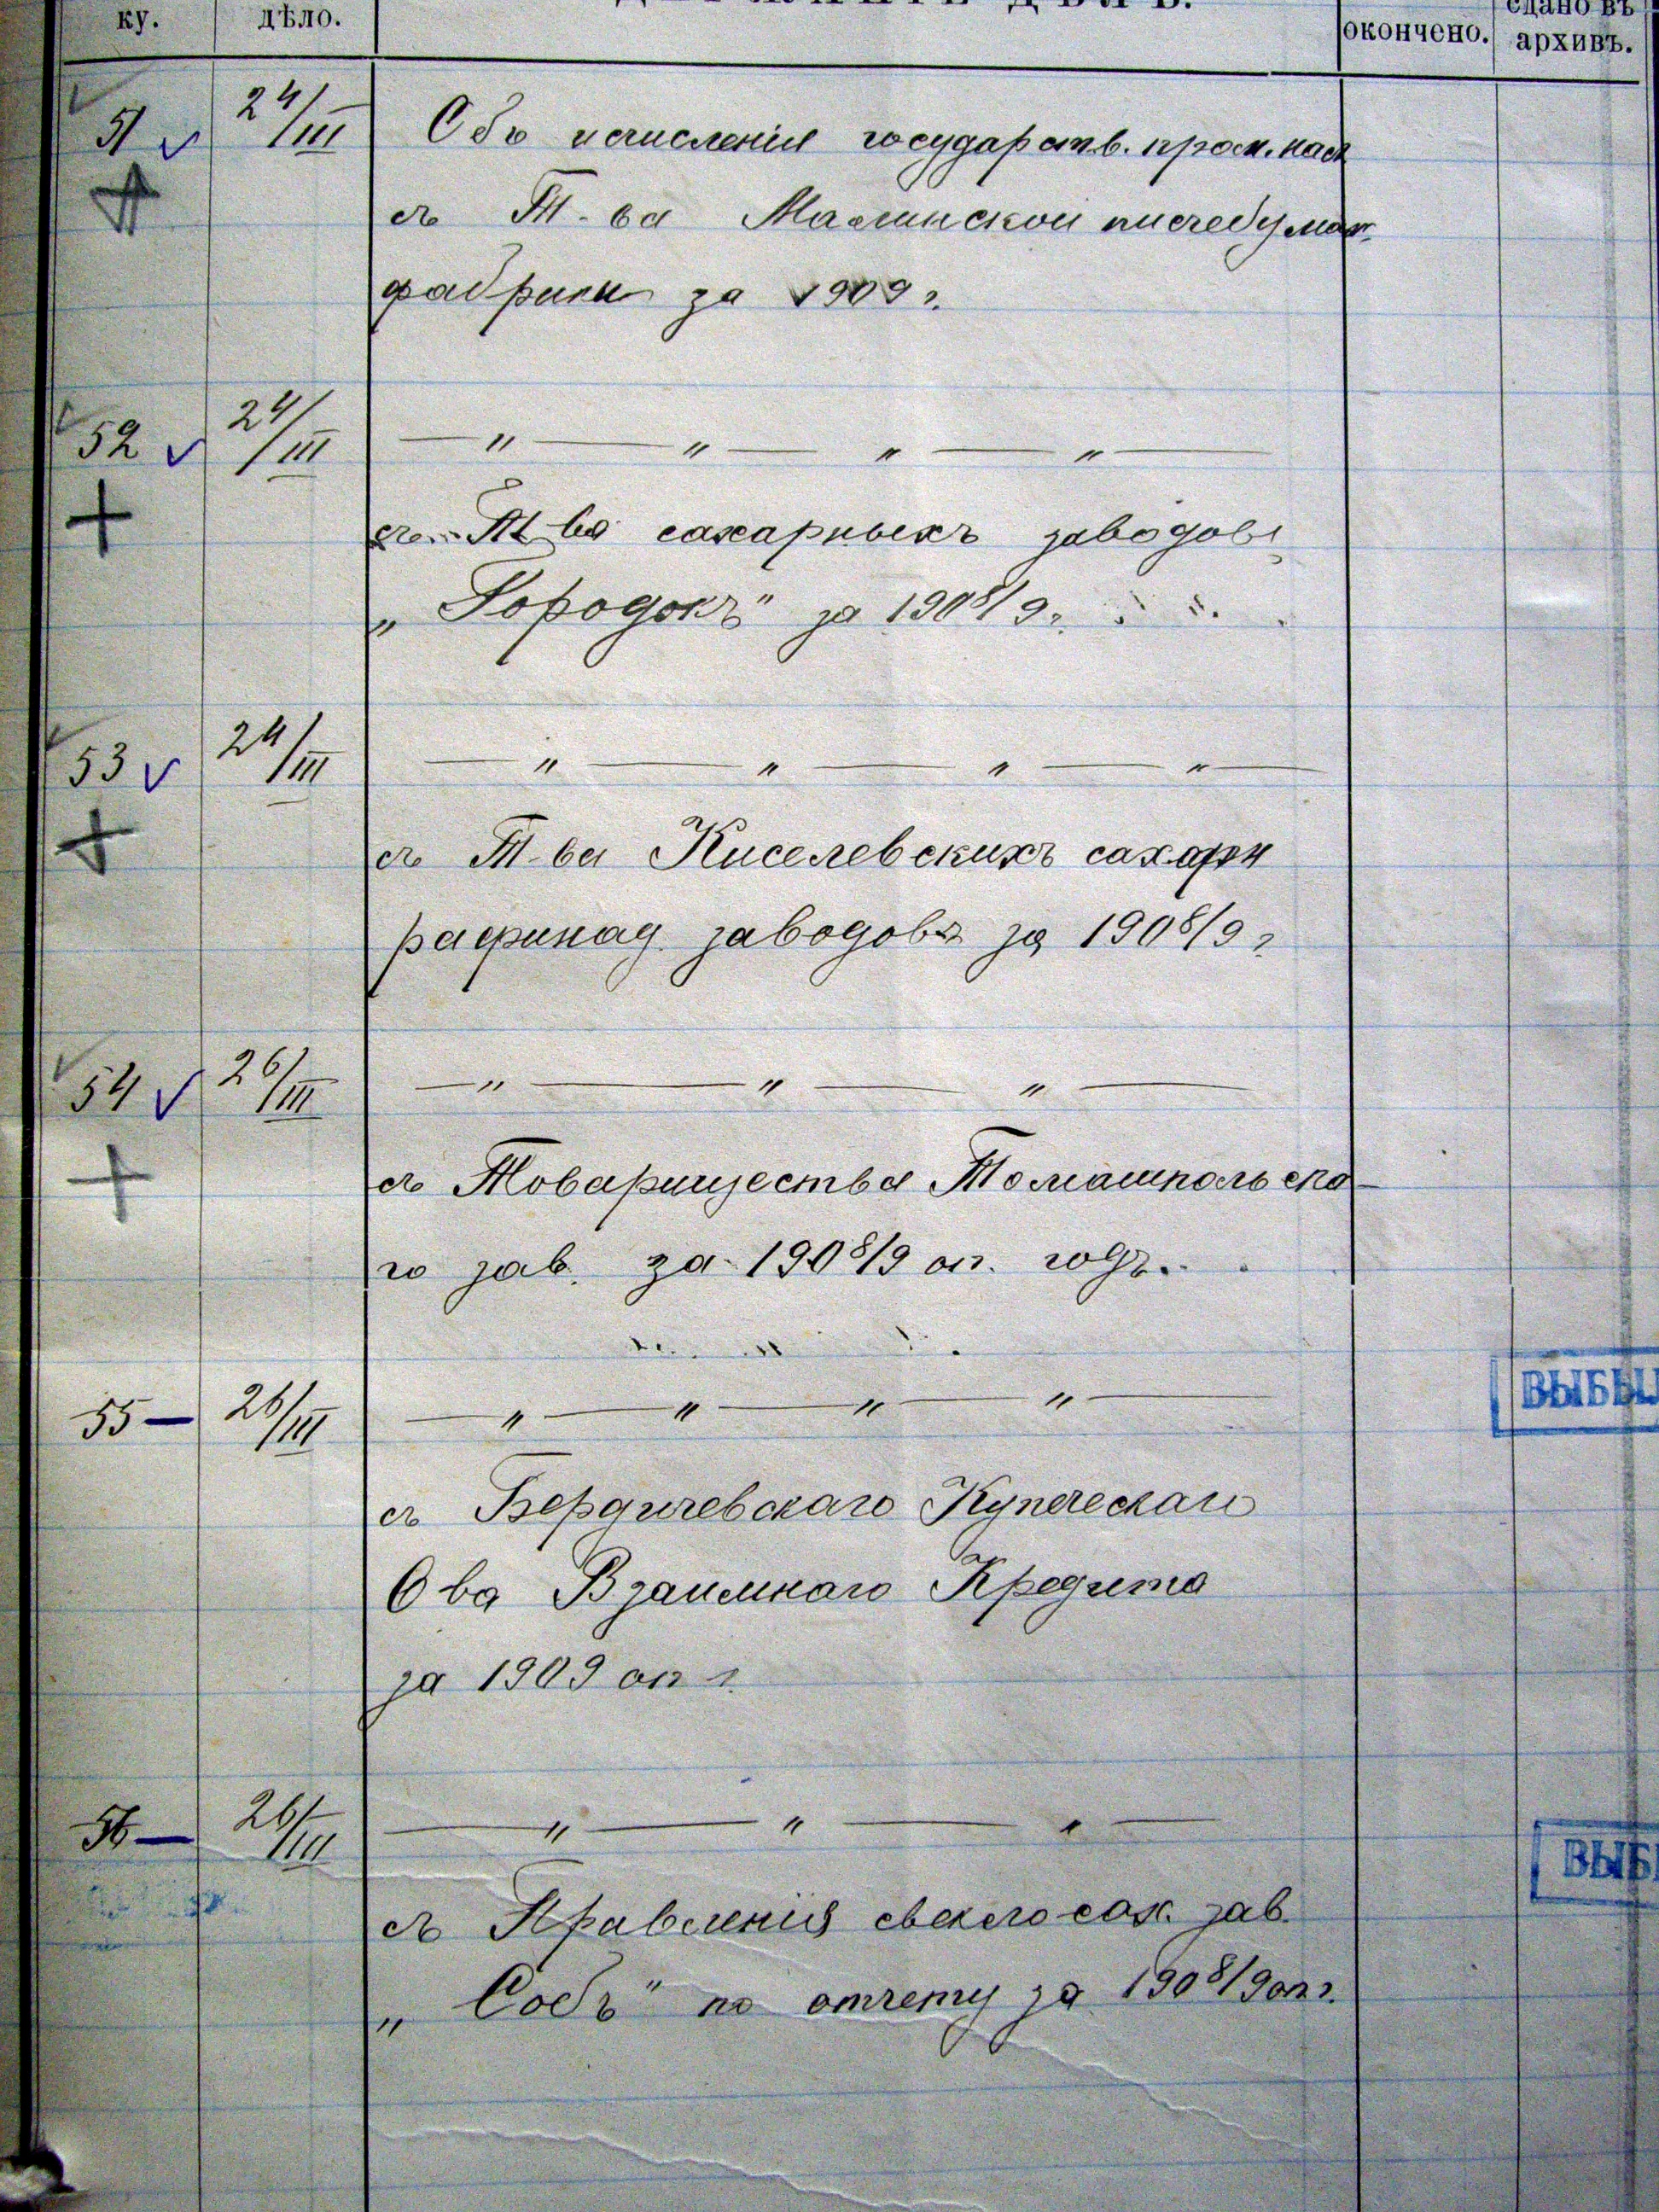 ку. дѣло. ДЕРЖАНІЕ ДѢЛЪ. окончено. сдано въ архивъ.
51 24/III Объ исчисленіи государств. пром. нал
съ Т-ва Малинской писчебумаж.
фабрики за 1909 г.
52 24/III — " — " — " — " —
съ Т-ва сахарныхъ заводовъ
„Городокъ" за 1908/9 г.
53 24/III — " — " — " — " —
съ Т-ва Киселевскихъ сахарн
рафинад. заводовъ за 1908/9 г
54 26/III — " — " — " —
съ Товарищества Томашпольска-
го зав. за 1908/9 оп. годъ.
55 — 26/III — " — " — " — " — ВЫБЫ
съ Бердичевскаго Купеческаго
О ва Взаимнаго Кредита
за 1909 оп г.
56 — 26/III — " — " — " — ВЫБ
съ Правленія свекло-сах. зав.
„Собъ" по отчету за 1908/9 оп г.